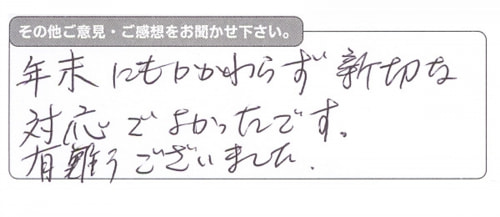 その他ご意見・ご感想をお聞かせ下さい。
年末にもかかわらず新切な
対応でよかったです。
有難うございました.